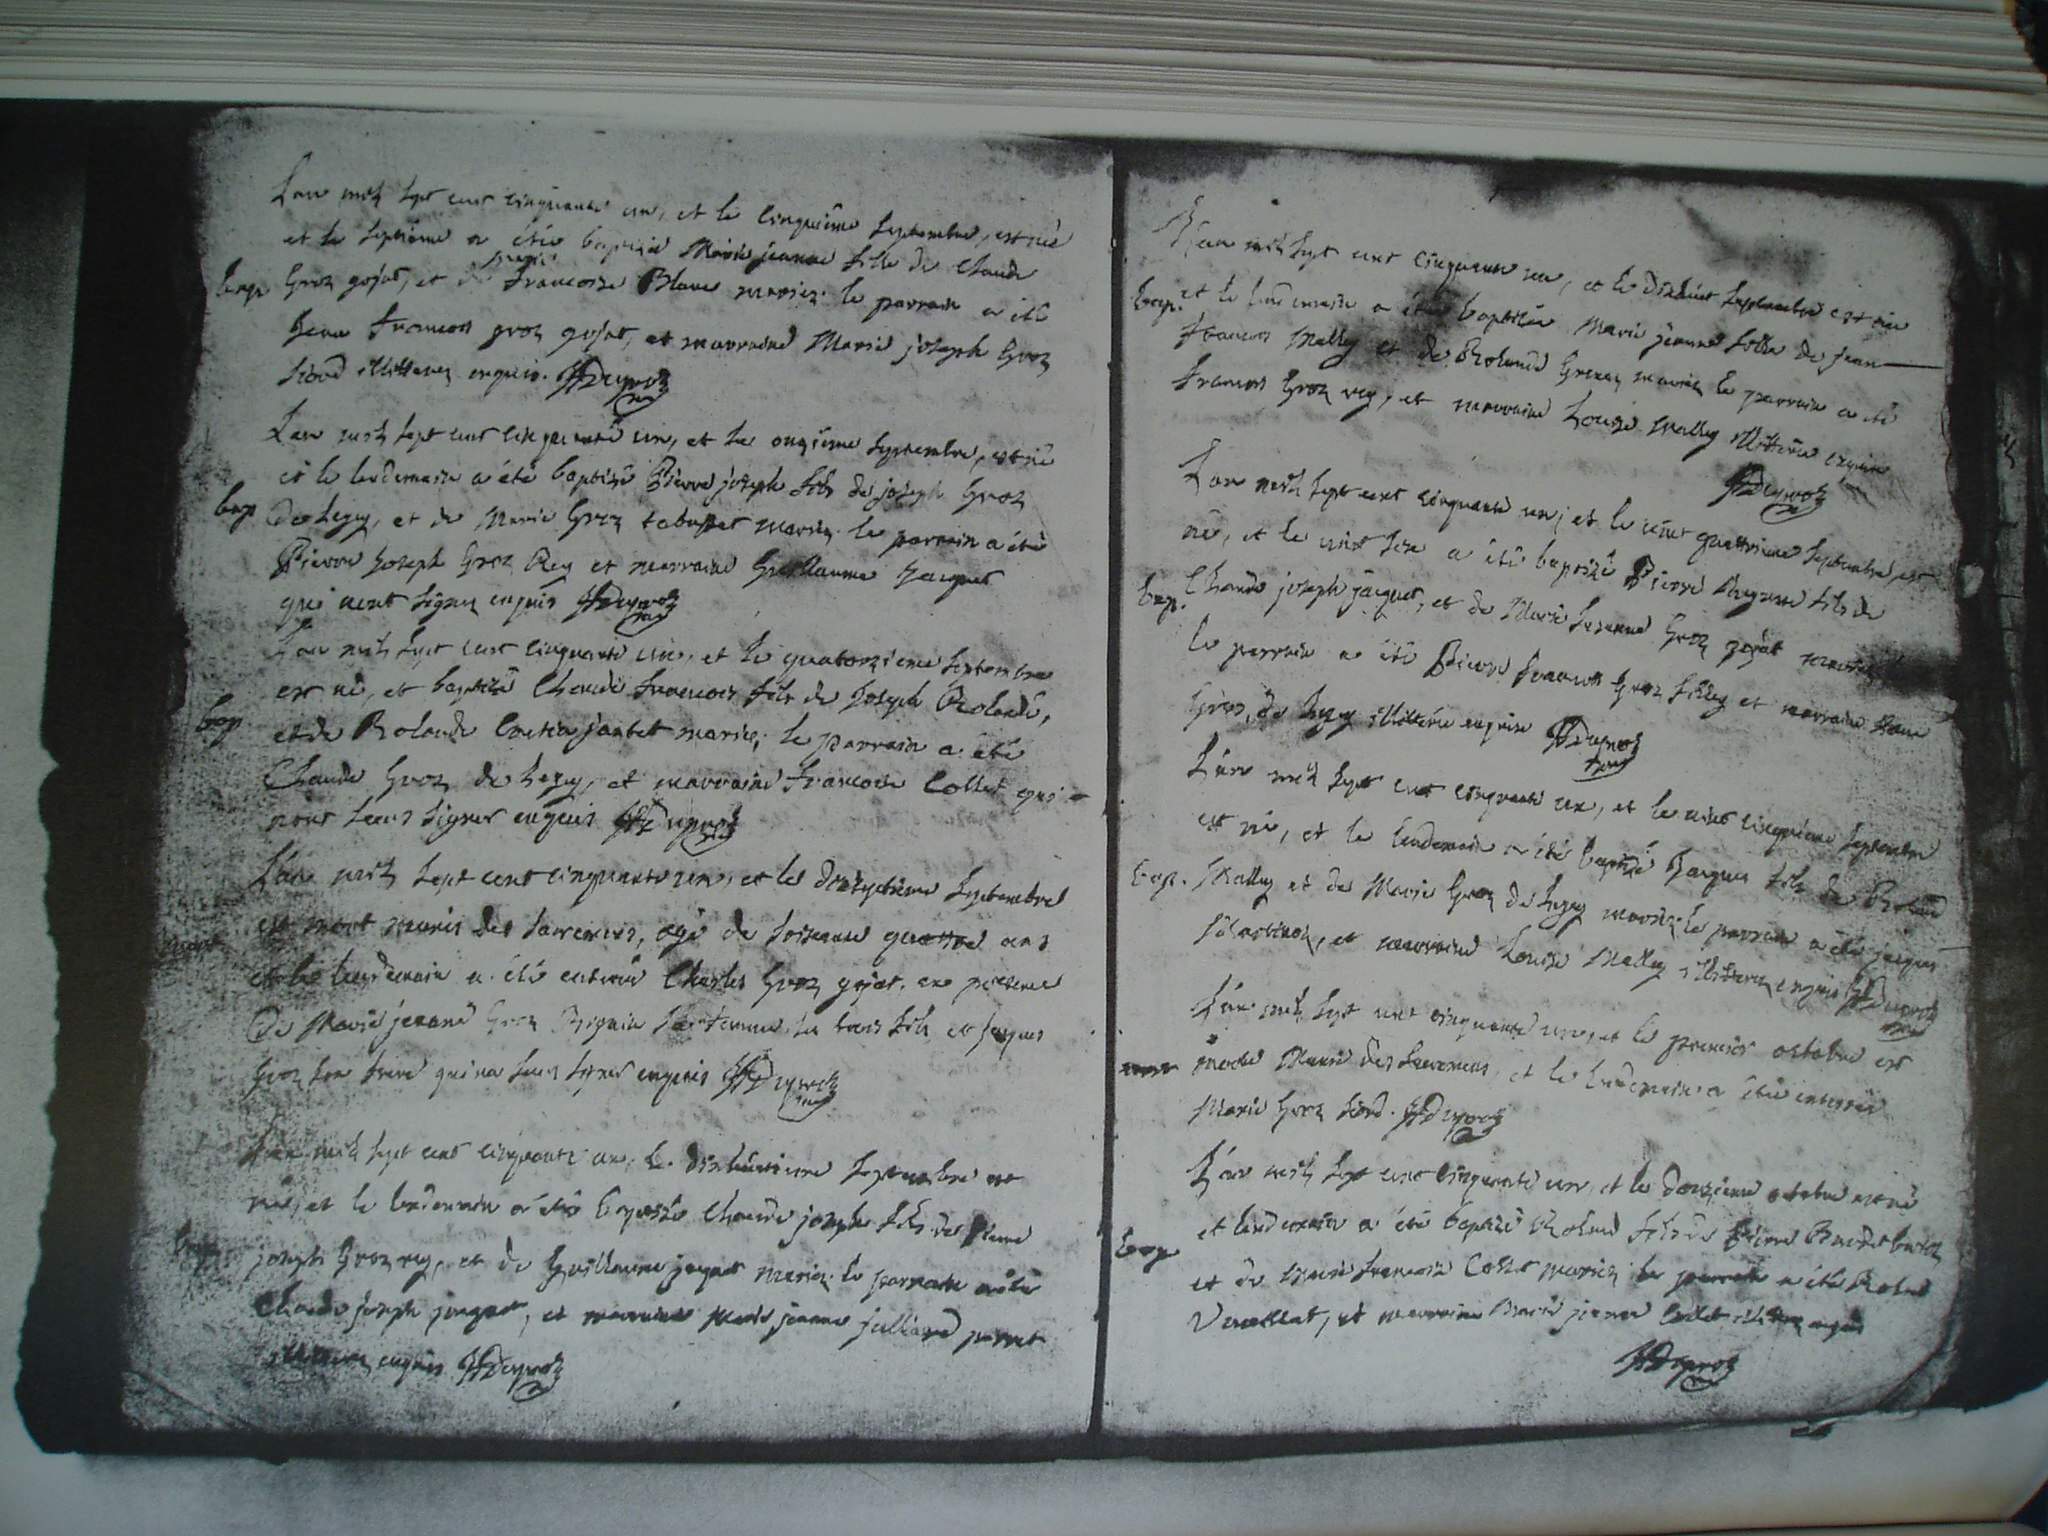 L'an mil sept cent cinquante un, et le cinquième septembre, est née
et le septième a été baptisée Marie jeanne fille de Claude
bap Groz gojat, et de françoise Blanc mariez. le parrain a été
Jean francois groz gojat, et marraine Marie joseph Groz
illitterez enquis. JfDuproz
L'an mil sept cent cinquante un, et le onzième septembre, est né
et le lendemain a été baptisé Pierre joseph fils de joseph Groz
bap de lezy, et de Marie Groz mariez. le parrain a été
Pierre Joseph Groz Rey et marraine Guillauma Jacquet
qui nont signez enquis
L'an mil sept cent cinquante un, et le quatorzieme septembre
est né, et baptisé Claude francois fils de Joseph Rolande,
bap et de Rolande mariez; le parrain a été
Claude Groz de lezy, et marraine francoise Collet qui
nont sceus signer enquis
L'an mil sept cent cinquante un, et le dixseptième septembre
est mort munis des sacremens, agé de soissante quattre ans
mort et le lendemain a été enterré Charles Groz gojat, en présence
De Marie jeanne Groz sa femme, fils et jacques
Groz son frere qui na sceus signer enquis
L'an mil sept cent cinquante un, le dixhuitieme septembre est
né, et le lendemain a été baptisé Claude joseph fils de Pierre
bap joseph Groz rey, et de Guillauma jaquet mariez. le parrain a été
Claude joseph jacquet, et marraine Marie jeanne julliard perret
illitterez enquis
L'an mil sept cent cinquante un, et le dixhuit septembre est née
bap. et le lendemain a été baptisée Marie jeanne fille de jean
francois Malley et de Rolande mariez le parrain a été
francois Groz rey, et marraine Louise Malley illitterée enquise
L'an mil sept cent cinquante un, et le vint quattrieme septembre, est
né, et le vint a été baptisé Pierre fils de
bap. Claude joseph jacquet, et de Marie Susanne Groz gojat mariez
le parrain a été Pierre francois Groz et marraine
Groz, de lezy illitterée enquise
L'an mil sept cent cinquante un, et le vint cinquième septembre
est né, et le lendemain a été baptisé Jacques fils de Roland
bap. Malley et de Marie Groz de lezy mariez. le parrain a été jacques
et marraine Louise Malley illitterez enquis
L'an mil sept cent cinquante un, et le premier octobre est
morte Munie des sacremens, et le lendemain a été enterrée
Marie Groz
L'an mil sept cent cinquante un, et le douzieme octobre est né
et lendemain a été baptisé Roland fils de Pierre
bap et de Marie francoise Collet mariez le parrain a été Roland
et marraine Marie jeanne Collet